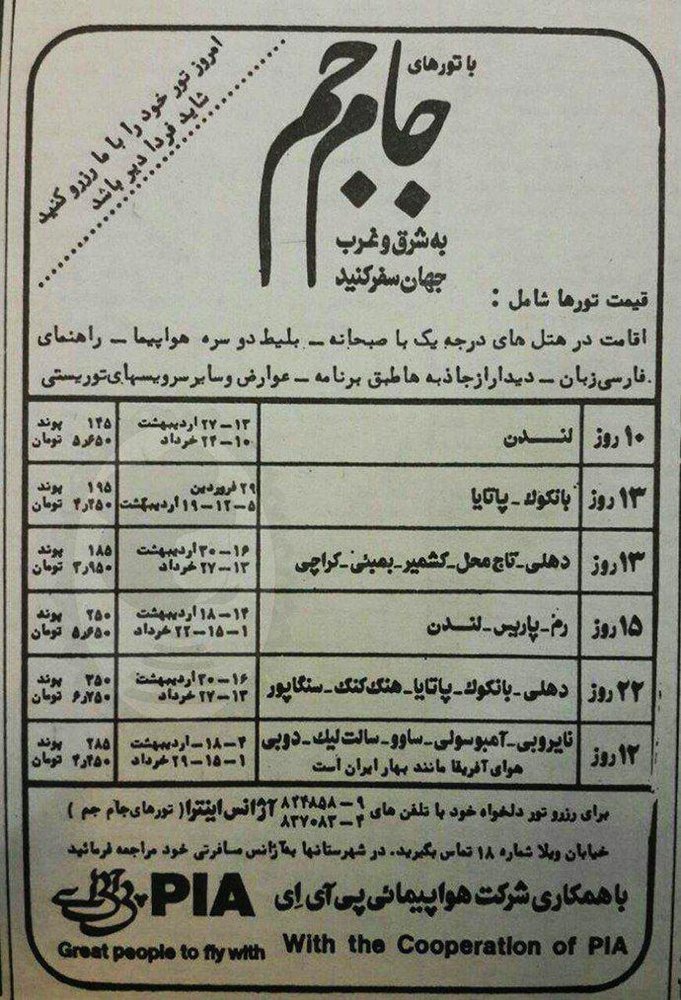 امروز تور خود را با ما رزرو کنید
شاید فردا دیر باشد
با تورهای
جام جم
به شرق و غرب
جهان سفر کنید
قیمت تورها شامل :
اقامت در هتل های درجه یک با صبحانه ـ بلیط دو سره هواپیما ـ راهنمای
فارسی زبان ـ دیدار از جاذبه ها طبق برنامه ـ عوارض و سایر سرویسهای توریستی
۱۰ روز لندن ۱۳ ـ ۲۷ اردیبهشت ۱۴۵ پوند
۱۰ ـ ۲۴ خرداد ۵٫۶۵۰ تومان
۱۳ روز بانکوک ـ پاتایا ۲۹ فروردین ۱۹۵ پوند
۵ ـ ۱۲ ـ ۱۹ اردیبهشت ۴٫۲۵۰ تومان
۱۳ روز دهلی ـ تاج محل ـ کشمیر ـ بمبئی ـ کراچی ۱۶ ـ ۳۰ اردیبهشت ۱۸۵ پوند
۱۳ ـ ۲۷ خرداد ۳٫۹۵۰ تومان
۱۵ روز رم ـ پاریس ـ لندن ۱۴ ـ ۱۸ اردیبهشت ۲۵۰ پوند
۱ ـ ۱۵ ـ ۲۲ خرداد ۵٫۶۵۰ تومان
۲۲ روز دهلی ـ بانکوک ـ پاتایا ـ هنگ کنگ ـ سنگاپور ۱۶ ـ ۳۰ اردیبهشت ۳۵۰ پوند
۱۳ ـ ۲۷ خرداد ۶٫۲۵۰ تومان
۱۲ روز نایروبی ـ آمبوسولی ـ ساوو ـ سالت لیک ـ دوبی ۴ ـ ۱۸ ـ اردیبهشت ۲۸۵ پوند
هوای آفریقا مانند بهار ایران است ۱ ـ ۱۵ ـ ۲۹ خرداد ۴٫۲۵۰ تومان
برای رزرو تور دلخواه خود با تلفن های ۹ ـ ۸۲۴۸۵۸ آژانس اینترا ( تورهای جام جم )
۴ ـ ۸۳۷۰۸۳
خیابان ویلا شماره ۱۸ تماس بگیرید. در شهرستانها به آژانس مسافرتی خود مراجعه فرمائید
با همکاری شرکت هواپیمائی پی آی ای PIA پی آی اے
Great people to fly with With the Cooperation of PIA